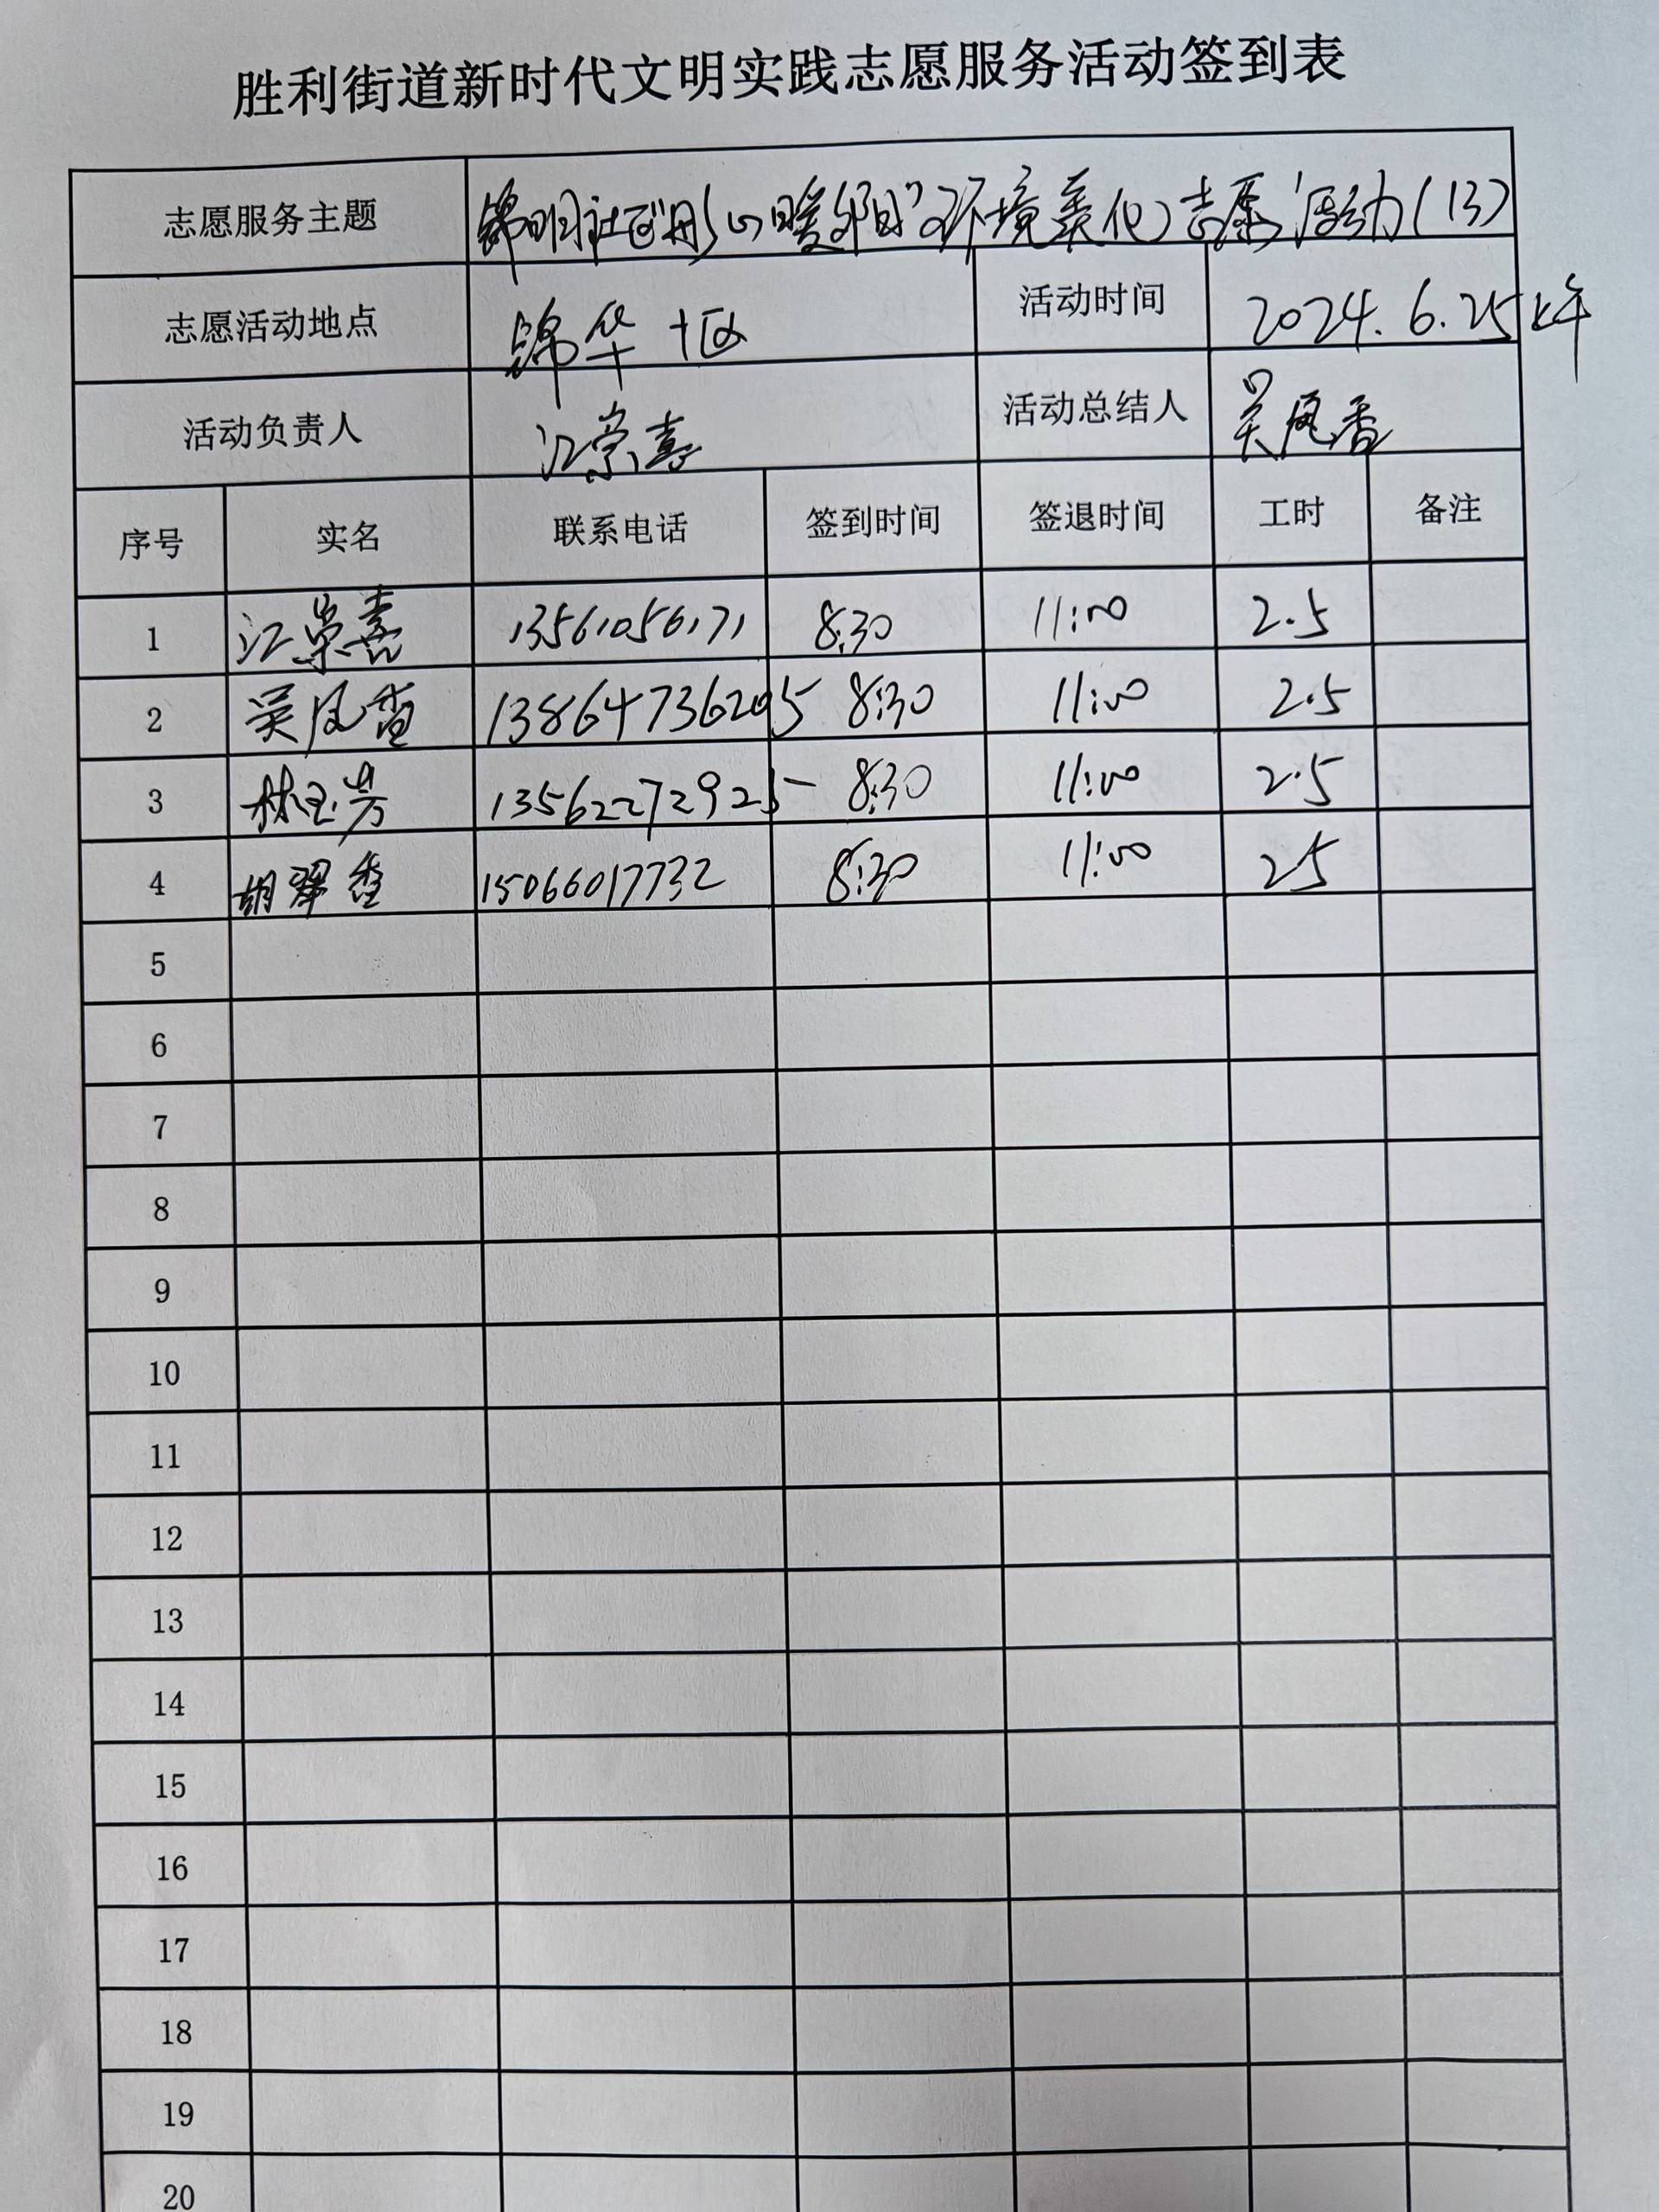 胜利街道新时代文明实践志愿服务活动签到表
志愿服务主题 锦明社区“彤心暖夕阳”环境美化志愿活动(13)
志愿活动地点 锦华十区 活动时间 2024.6.25上午
活动负责人 江崇喜 活动总结人 吴凤香
序号 实名 联系电话 签到时间 签退时间 工时 备注
1 江崇喜 13561056171 8:30 11:00 2.5
2 吴凤香 13864736205 8:30 11:00 2.5
3 林玉芳 13562272925 8:30 11:00 2.5
4 胡翠香 15066017732 8:30 11:00 25
5
6
7
8
9
10
11
12
13
14
15
16
17
18
19
20